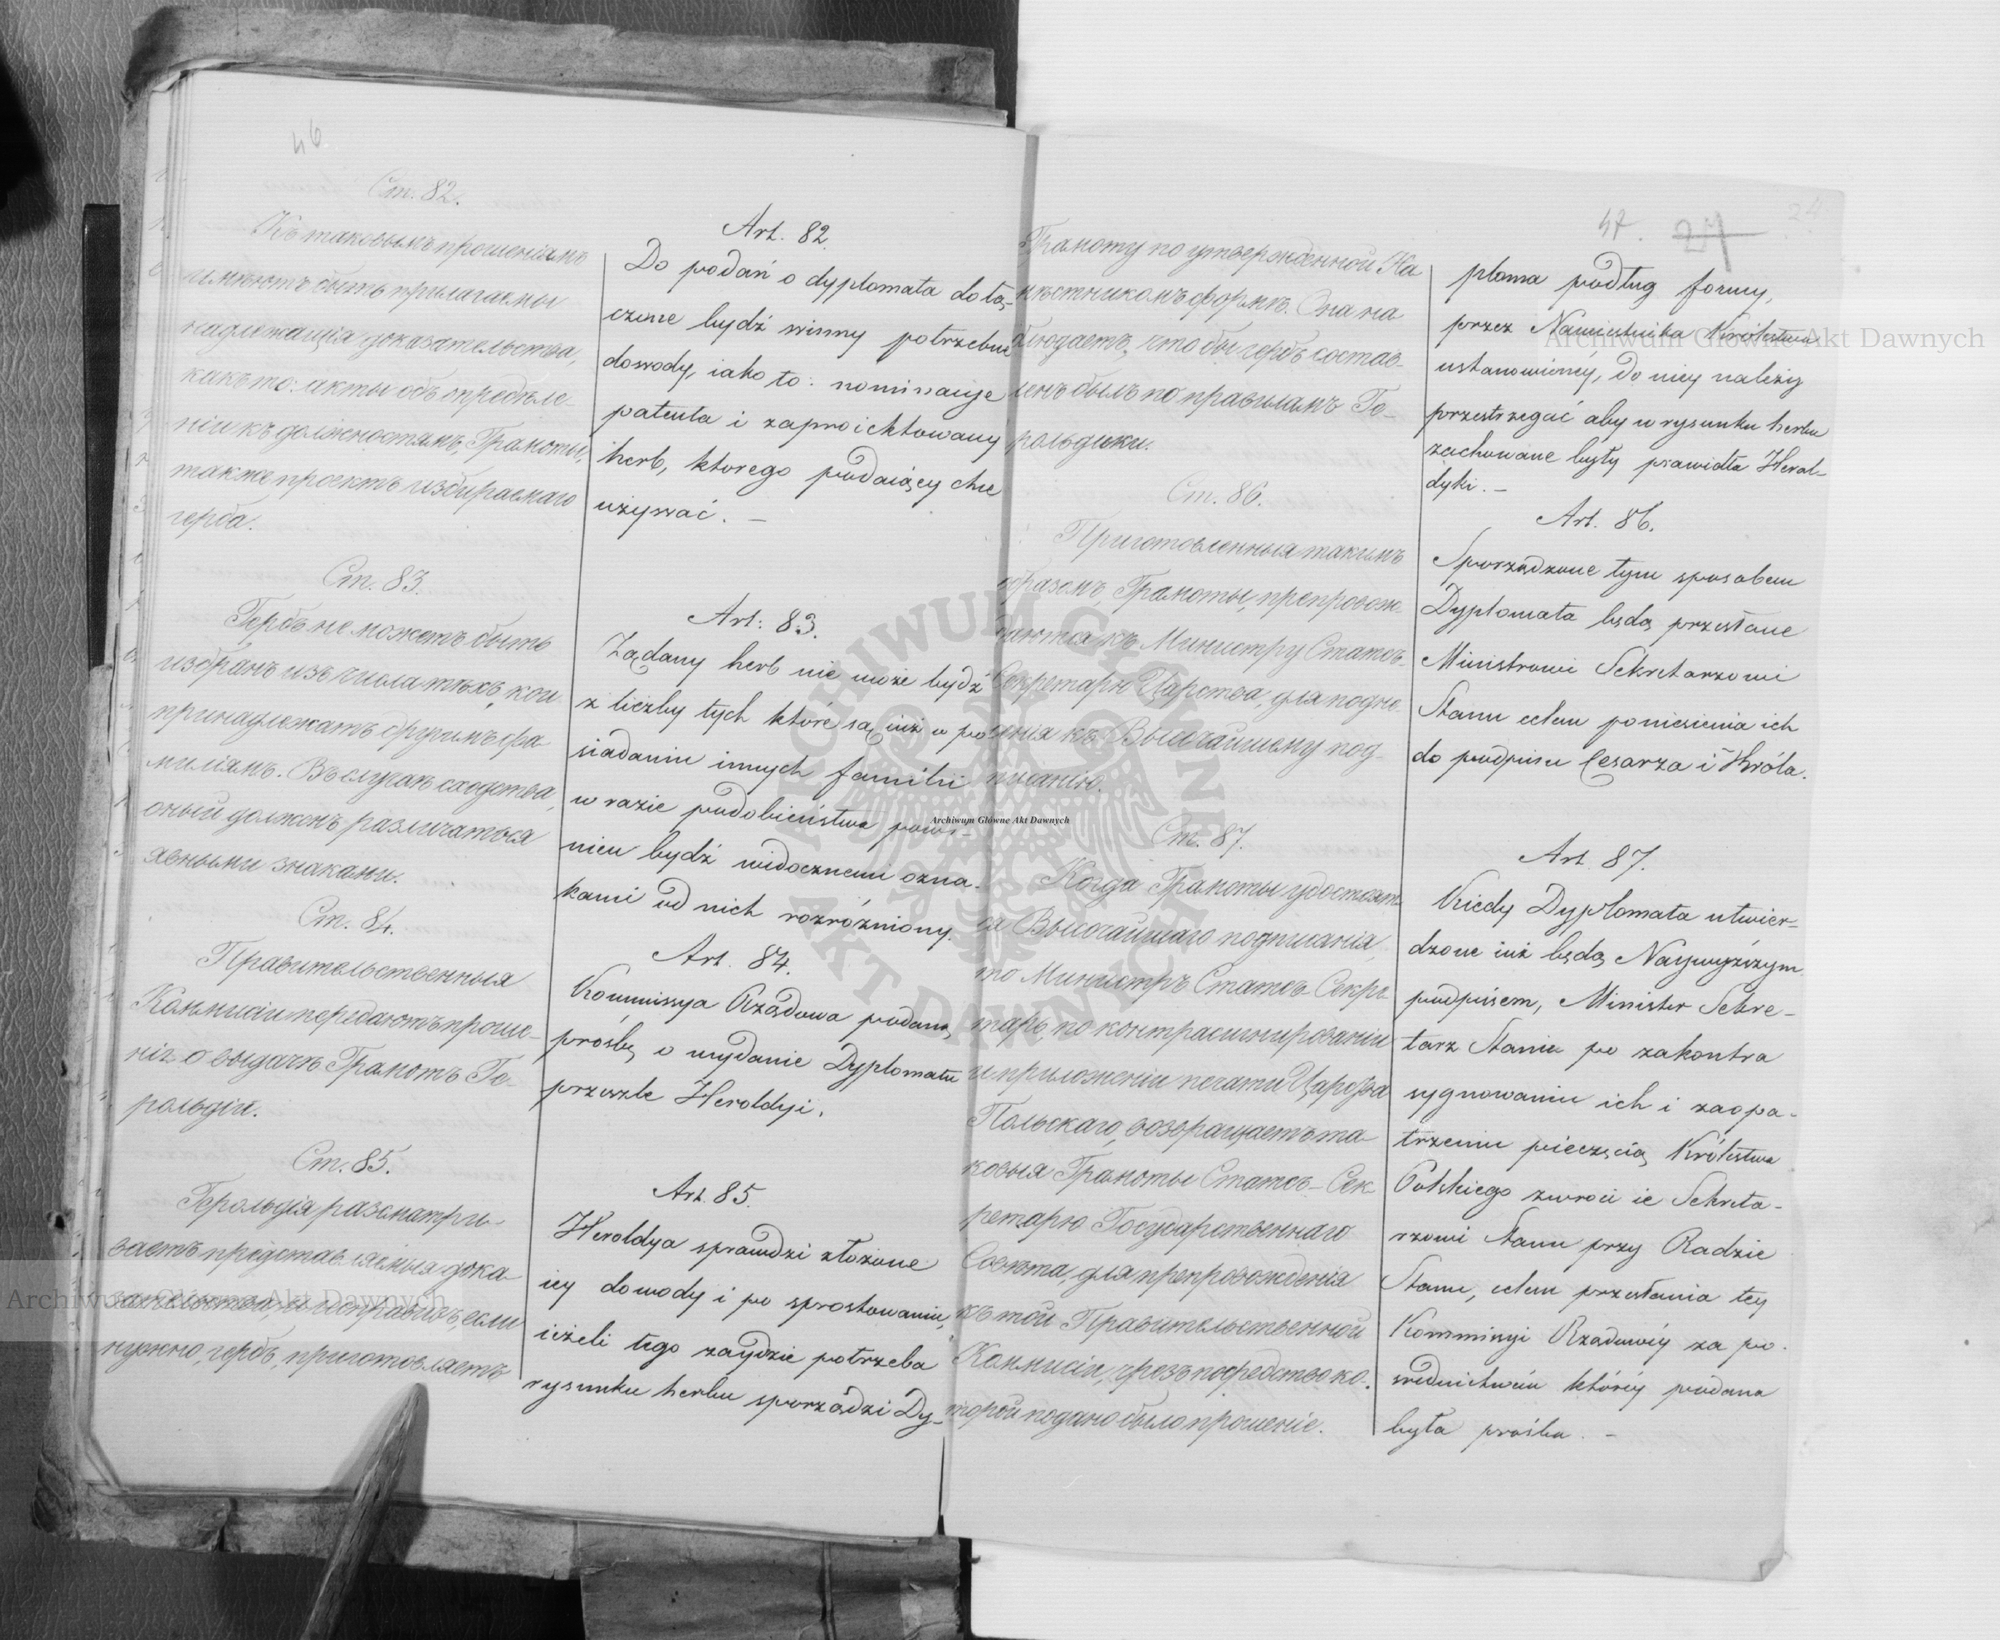 46
Ст. 82.
Къ таковымъ прошеніямъ
имѣютъ быть прилагаемы
надлежащія доказательства,
какъ то: акты объ опредѣле-
ніи къ должностямъ, Грамоты,
также проектъ избираемаго
герба.
Ст. 83.
Гербъ не можетъ быть
избранъ изъ числа тѣхъ, кои
принадлежатъ другимъ фа
миліямъ. Въ случаѣ сходства,
оный долженъ различаться
явными знаками.
Ст. 84.
Правительственныя
Коммисіи передаютъ проше-
нія о выдачѣ Грамотъ Ге-
рольдіи.
Ст. 85.
Герольдія разсматри-
ваетъ представляемыя дока
зательства, и исправивъ, если
нужно, гербъ, приготовляетъ
Art. 82.
Do podań o dyplomata dołą-
czone bydź winny potrzebne
dowody, iako to: nominacye
patenta i zaproiektowany
herb, ktorego podaiący chce
używać. –
Art: 83.
Żądany herb nie może bydź
z liczby tych które są iuż w po
siadaniu innych familii
w razie podobieństwa powi-
nien bydź widocznemi ozna-
kami od nich rozróżniony.
Art. 84.
Kommissya Rządowa podaną
prośbę o wydanie Dyplomatu
przeszle Heroldyi.
Art. 85.
Heroldya sprawdzi złożone
iey dowody i po sprostowaniu,
ieżeli tego zaydzie potrzeba
rysunku herbu sporządzi Dy-
47. 24
Грамоту по утвержденной На
мѣстникомъ формѣ. Она на
блюдаетъ, что бы гербъ состав-
ленъ былъ по правиламъ Ге-
рольдики.
Ст. 86.
Приготовленныя такимъ
образомъ, Грамоты, препровож-
даются къ Министру Статсъ-
Секретарю Царства, для подне
сенія къ Высочайшему под-
писанію.
Ст. 87.
Когда Грамоты удостоят
ся Высочайшаго подписанія,
то Министръ Статсъ-Секре-
тарь, по контрасигнированіи
и приложеніи печати Царства
Польскаго, возвращаетъ та
ковыя Грамоты Статсъ-Сек
ретарю Государственнаго
Совѣта, для препровожденія
къ той Правительственной
Коммисіи, чрезъ посредство ко-
торой подано было прошеніе.
ploma podług formy,
przez Namiestnika Królestwa
ustanowionéy, do niey należy
przestrzegać aby w rysunku herbu
zachowane były prawidła Heral-
dyki. –
Art. 86.
Sporządzone tym sposobem
Dyplomata będą przesłane
Ministrowi Sekretarzowi
Stanu celem poniesienia ich
do podpisu Cesarza i Króla.
Art. 87.
Kiedy Dyplomata utwier-
dzone iuż będą Naywyższym
podpisem, Minister Sekre-
tarz Stanu po zakontra
sygnowaniu ich i zaopa-
trzeniu pieczęcią Królestwa
Polskiego zwroci ie Sekreta-
rzowi Stanu przy Radzie
Stanu, celem przesłania tey
Kommissyi Rządowéy za po-
średnictwem któréy podana
była prośba. –
Archiwum Główne Akt Dawnych
Archiwum Główne Akt Dawnych
Archiwum Główne Akt Dawnych
ARCHIWUM GŁÓWNE AKT DAWNYCH